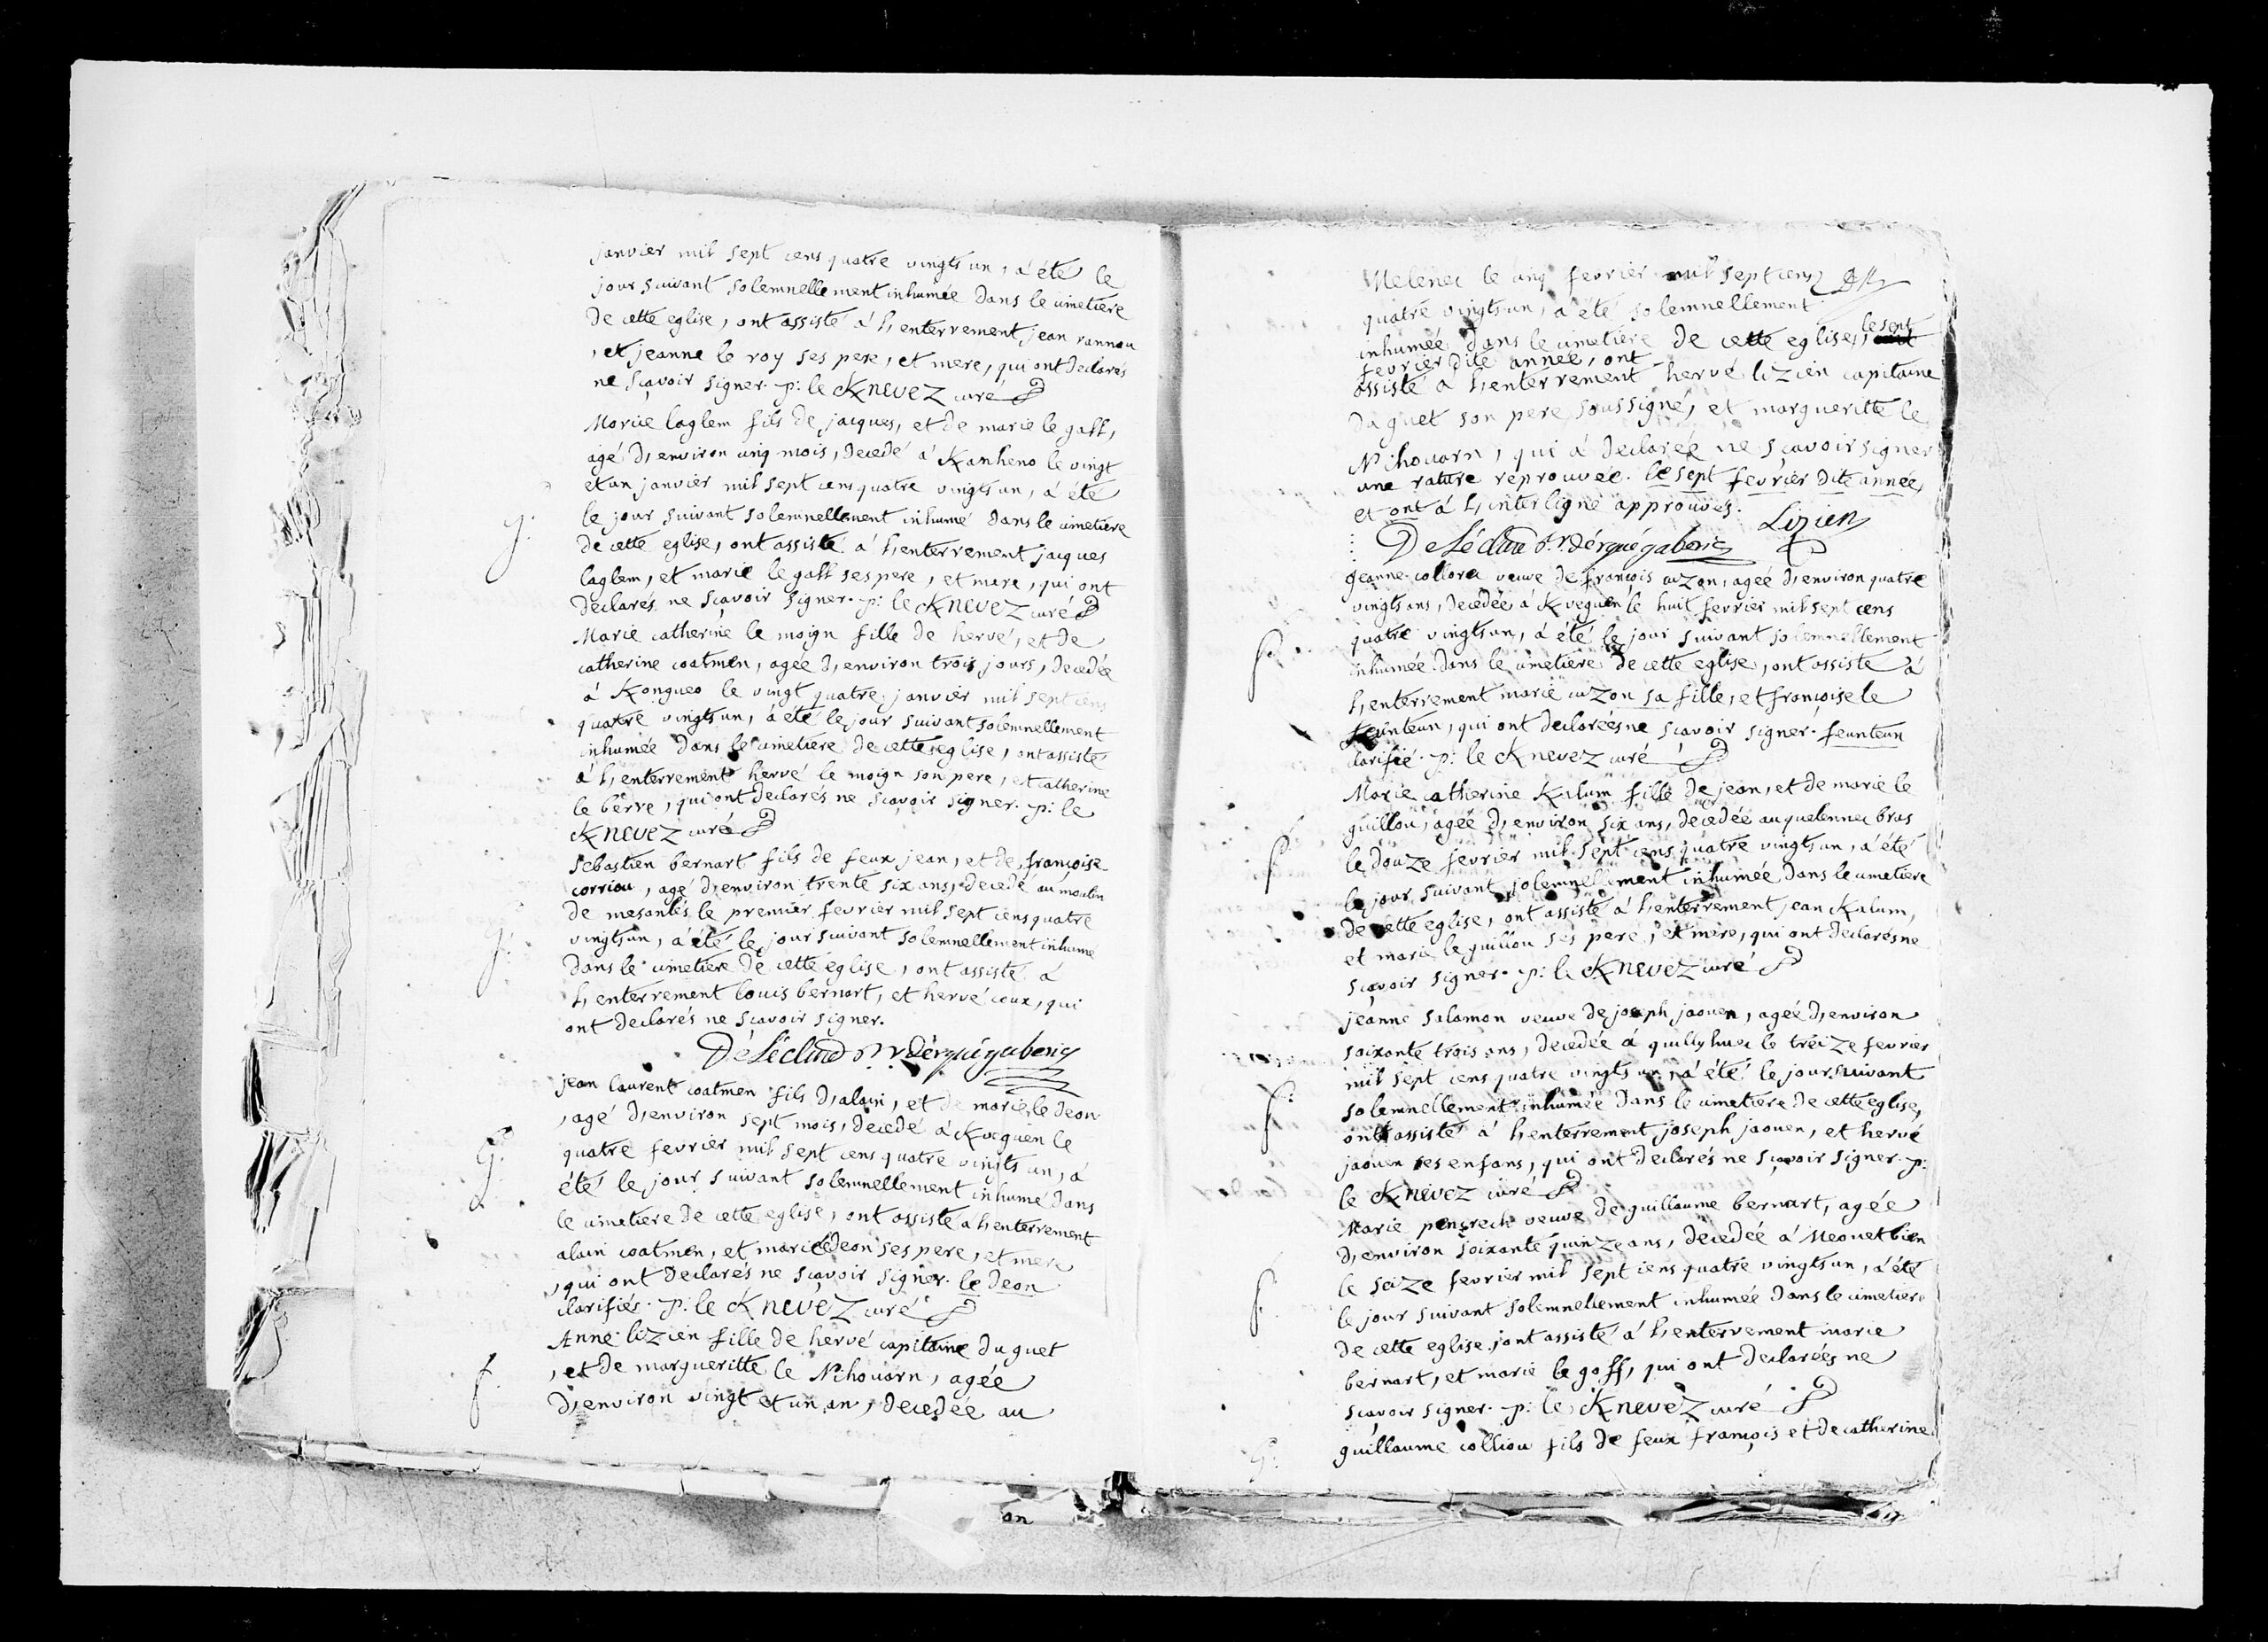 janvier mil sept cens quatre vingts un, á été le
jour suivant solemnellement inhumée dans le cimetiere
de cette eglise, ont assisté á l'enterrement jean rannou
, et jeanne le roy ses pere, et mere, qui ont declarés
ne sçavoir signer. p: le Knevez curé
Morice laglem fils de jacques, et de marie le gall,
agé d'environ cinq mois, decedé á Kanheno le vingt
et un janvier mil sept cens quatre vingts un, á été
g. le jour suivant solemnellement inhumé dans le cimetiere
de cette eglise, ont assisté á l'enterrement jacques
laglem, et marie le gall ses pere, et mere, qui ont
declarés ne sçavoir signer. p: le Knevez curé
Marie catherine le moign fille de hervé, et de
catherine coatmen, agée d'environ trois jours, decedée
á Kongueo le vingt quatre janvier mil sept cens
quatre vingts un, á été le jour suivant solemnellement
inhumée dans le cimetiere de cette eglise, ont assisté
á l'enterrement hervé le moign son pere, et catherine
le berre, qui ont declarés ne sçavoir signer. p: le
Knevez curé
Sebastien bernart fils de feux jean, et de françoise
corriou, agé d'environ trente six ans, decedé au moulin
de mesanlés le premier fevrier mil sept cens quatre
g. vingts un, á été le jour suivant solemnellement inhumé
dans le cimetiere de cette eglise, ont assisté á
l'enterrement louis bernart, et hervé coux, qui
ont declarés ne sçavoir signer.
De Lécluse r. dérguégaberic
jean laurent coatmen fils d'alain, et de marie le deon
, agé d'environ sept mois, decedé á Kveguen le
g. quatre fevrier mil sept cens quatre vingts un, á
été le jour suivant solemnellement inhumé dans
le cimetiere de cette eglise, ont assisté á l'enterrement
alain coatmen, et marie le deon ses pere, et mere
, qui ont declarés ne sçavoir signer. le deon
clarifiés. p: le Knevez curé
Anne lizien fille de hervé capitaine du guet
f. , et de margueritte le Nihouarn, agée
d'environ vingt et un an, decedée au
Melenec le cinq fevrier mil sept cens
quatre vingts un, á été solemnellement
inhumée dans le cimetiere de cette eglise, le sept
fevrier dite année, ont
assisté á l'enterrement hervé lizien capitaine
du guet son pere soussigné, et margueritte le
Nihouarn, qui á declarée ne sçavoir signer
une rature reprouvée. le sept fevrier dite année,
et ont á l'interligne approuvés.
Lizien
De Lécluse r. dérguégaberic
jeanne collorec veuve de françois cuzon, agée d'environ quatre
vingts ans, decedée á Kveguen le huit fevrier mil sept cens
f. quatre vingts un, á été le jour suivant solemnellement
inhumée dans le cimetiere de cette eglise, ont assisté á
l'enterrement marie cuzon sa fille, et françoise le
feunteun, qui ont declarées ne sçavoir signer. feunteun
clarifié. p: le Knevez curé
Marie catherine Kalum fille de jean, et de marie le
guillou, agée d'environ six ans, decedée au quelennec bras
f. le douze fevrier mil sept cens quatre vingts un, á été
le jour suivant solemnellement inhumée dans le cimetiere
de cette eglise, ont assisté á l'enterrement jean Kalum,
et marie le guillou ses pere, et mere, qui ont declarés ne
sçavoir signer. p: le Knevez curé
jeanne salomon veuve de joseph jaouen, agée d'environ
soixante trois ans, decedée á quillyhuec le treize fevrier
f. mil sept cens quatre vingts un, á été le jour suivant
solemnellement inhumée dans le cimetiere de cette eglise,
ont assisté á l'enterrement joseph jaouen, et hervé
jaouen ses enfans, qui ont declarés ne sçavoir signer. p:
le Knevez curé
Marie pensrech veuve de guillaume bernart, agée
d'environ soixante quinze ans, decedée á Meouet bien
f. le seize fevrier mil sept cens quatre vingts un, á été
le jour suivant solemnellement inhumée dans le cimetiere
de cette eglise, ont assisté á l'enterrement marie
bernart, et marie le goff, qui ont declarées ne
sçavoir signer. p: le Knevez curé
g. guillaume colliou fils de feux françois et de catherine